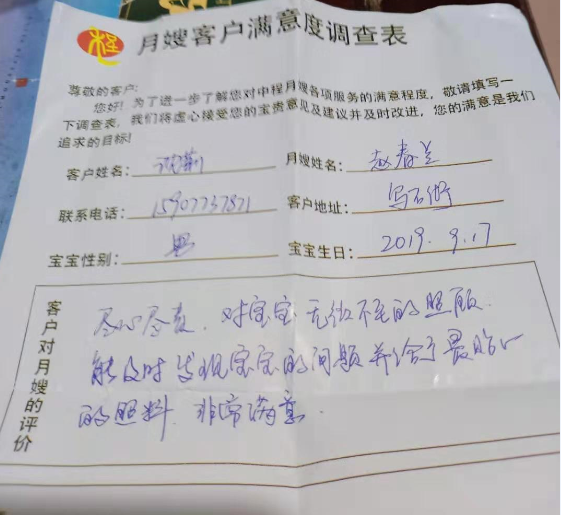 月嫂客户满意度调查表
尊敬的客户:
您好!为了进一步了解您对中程月嫂各项服务的满意程度,敬请填写一
下调查表,我们将虚心接受您的宝贵意见及建议并及时改进,您的满意是我们
追求的目标!
客户姓名: 月嫂姓名:赵春兰
联系电话:15907737871 客户地址:
宝宝性别:男 宝宝生日:2019.9.17
客户对月嫂的评价
尽心尽责,对宝宝无微不至的照顾.
能及时发现宝宝的问题并给予最贴心
的照料.非常满意.